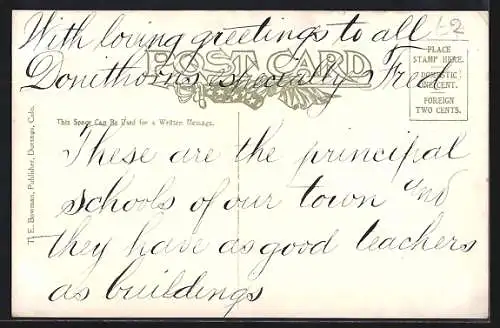 With loving greetings to all
Donithorn's especially Fred
POST CARD
PLACE
STAMP HERE.
DOMESTIC
ONE CENT.
FOREIGN
TWO CENTS.
This Space Can Be Used for a Written Message.
T. E. Bowman, Publisher, Durango, Colo.
These are the principal
schools of our town and
they have as good teachers
as buildings